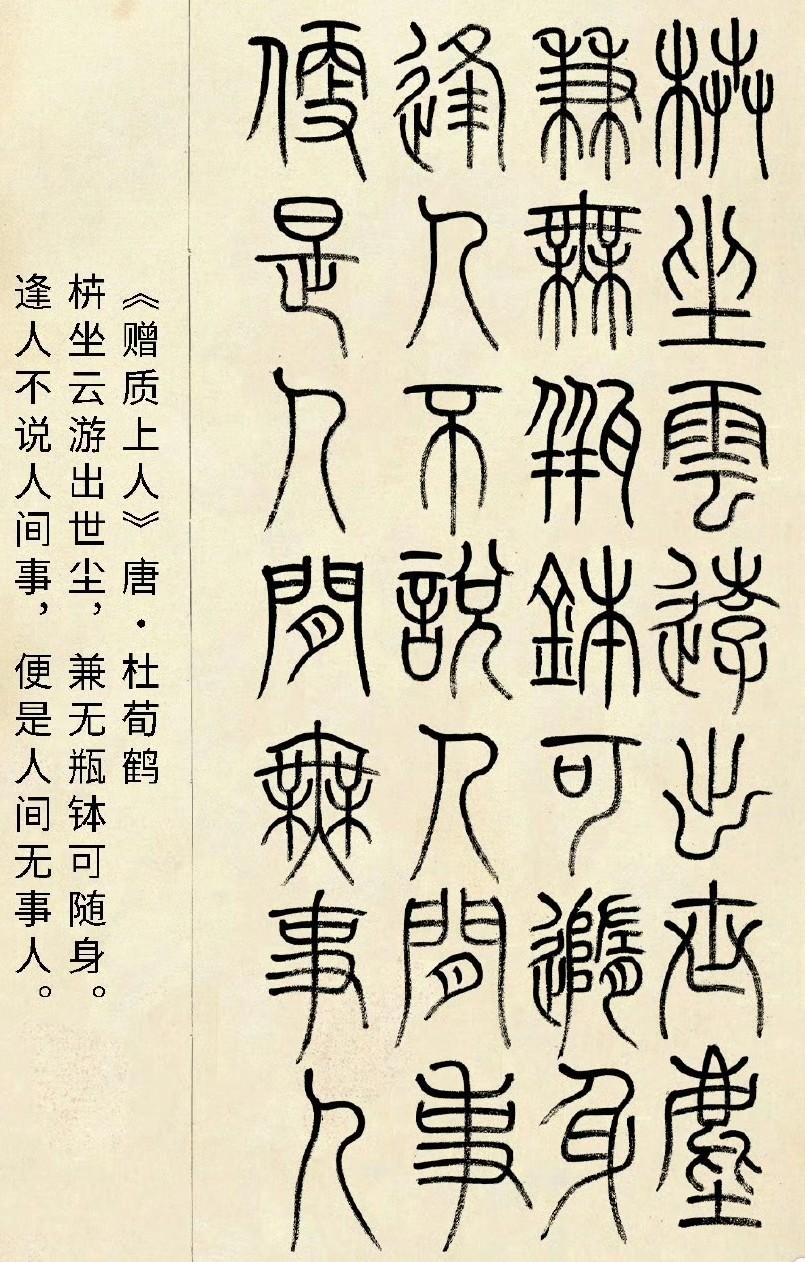 枿坐雲遊出世塵
兼無缾鉢可隨身
逢人不說人間事
便是人間無事人
《赠质上人》唐·杜荀鹤
枿坐云游出世尘，兼无瓶钵可随身。
逢人不说人间事，便是人间无事人。